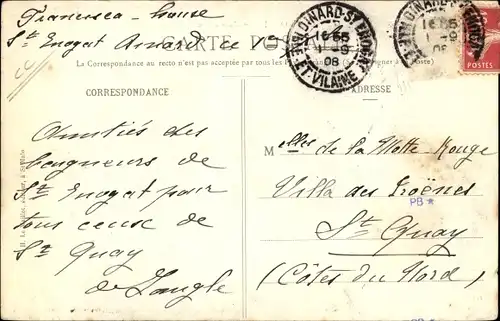 Francisca - house
St Enogat Dinard ce 1er
CARTE POSTALE
La Correspondance au recto n'est pas acceptée par tous les
DINARD-ST ENOGAT
16 55
1-9
08
ET-VILAINE
POSTES
CORRESPONDANCE
ADRESSE
Amitiés des
baigneurs de
St Enogat pour
tous ceux de
St Quay
de Langle
Melles de la Motte-Rouge
Villa des Troënes
PB *
St Quay
(Côtes du Nord)